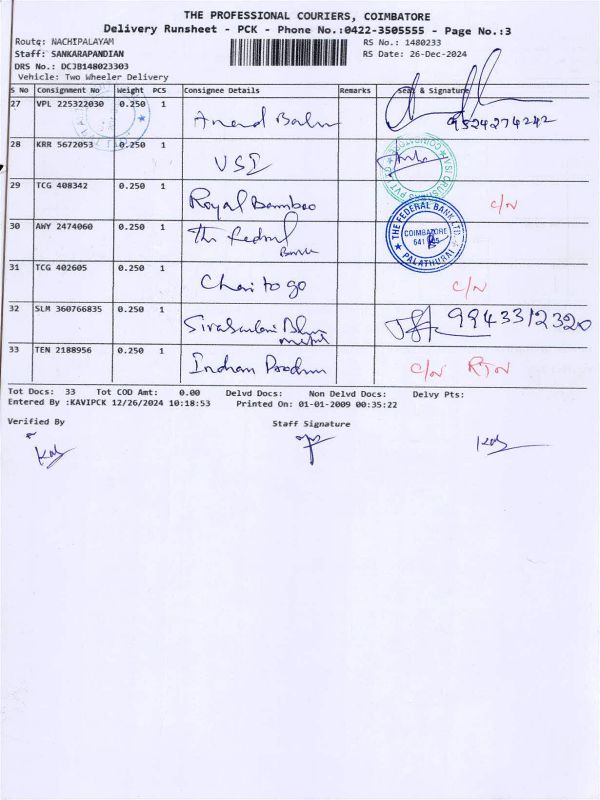 THE PROFESSIONAL COURIERS, COIMBATORE
Delivery Runsheet - PCK - Phone No.:0422-3505555 - Page No.:3
Route: NACHIPALAYAM RS No.: 1480233
Staff: SANKARAPANDIAN RS Date: 26-Dec-2024
DRS No.: DCJB148023303
Vehicle: Two Wheeler Delivery
S No Consignment No Weight PCS Consignee Details Remarks Seal & Signature
27 VPL 225322030 0.250 1 Anand Babu 9524274242
28 KRR 5672053 0.250 1 VSI
29 TCG 408342 0.250 1 Royal Bamboo C/N
30 AWY 2474060 0.250 1 The Fedral Bank THE FEDERAL BANK LTD. COIMBATORE PALATHURAI
31 TCG 402605 0.250 1 Chai to go C/N
32 SLM 360766835 0.250 1 9943312320
33 TEN 2188956 0.250 1 Indian C/N RTN
Tot Docs: 33 Tot COD Amt: 0.00 Delvd Docs: Non Delvd Docs: Delvy Pts:
Entered By :KAVIPCK 12/26/2024 10:18:53 Printed On: 01-01-2009 00:35:22
Verified By Staff Signature